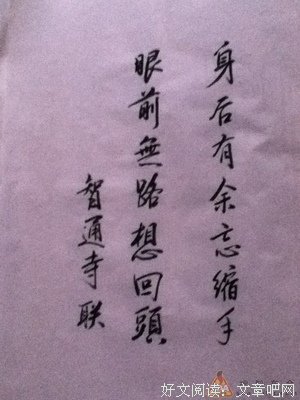 身后有余忘缩手
眼前無路想回頭
智通寺联
好文阅读 文章吧网